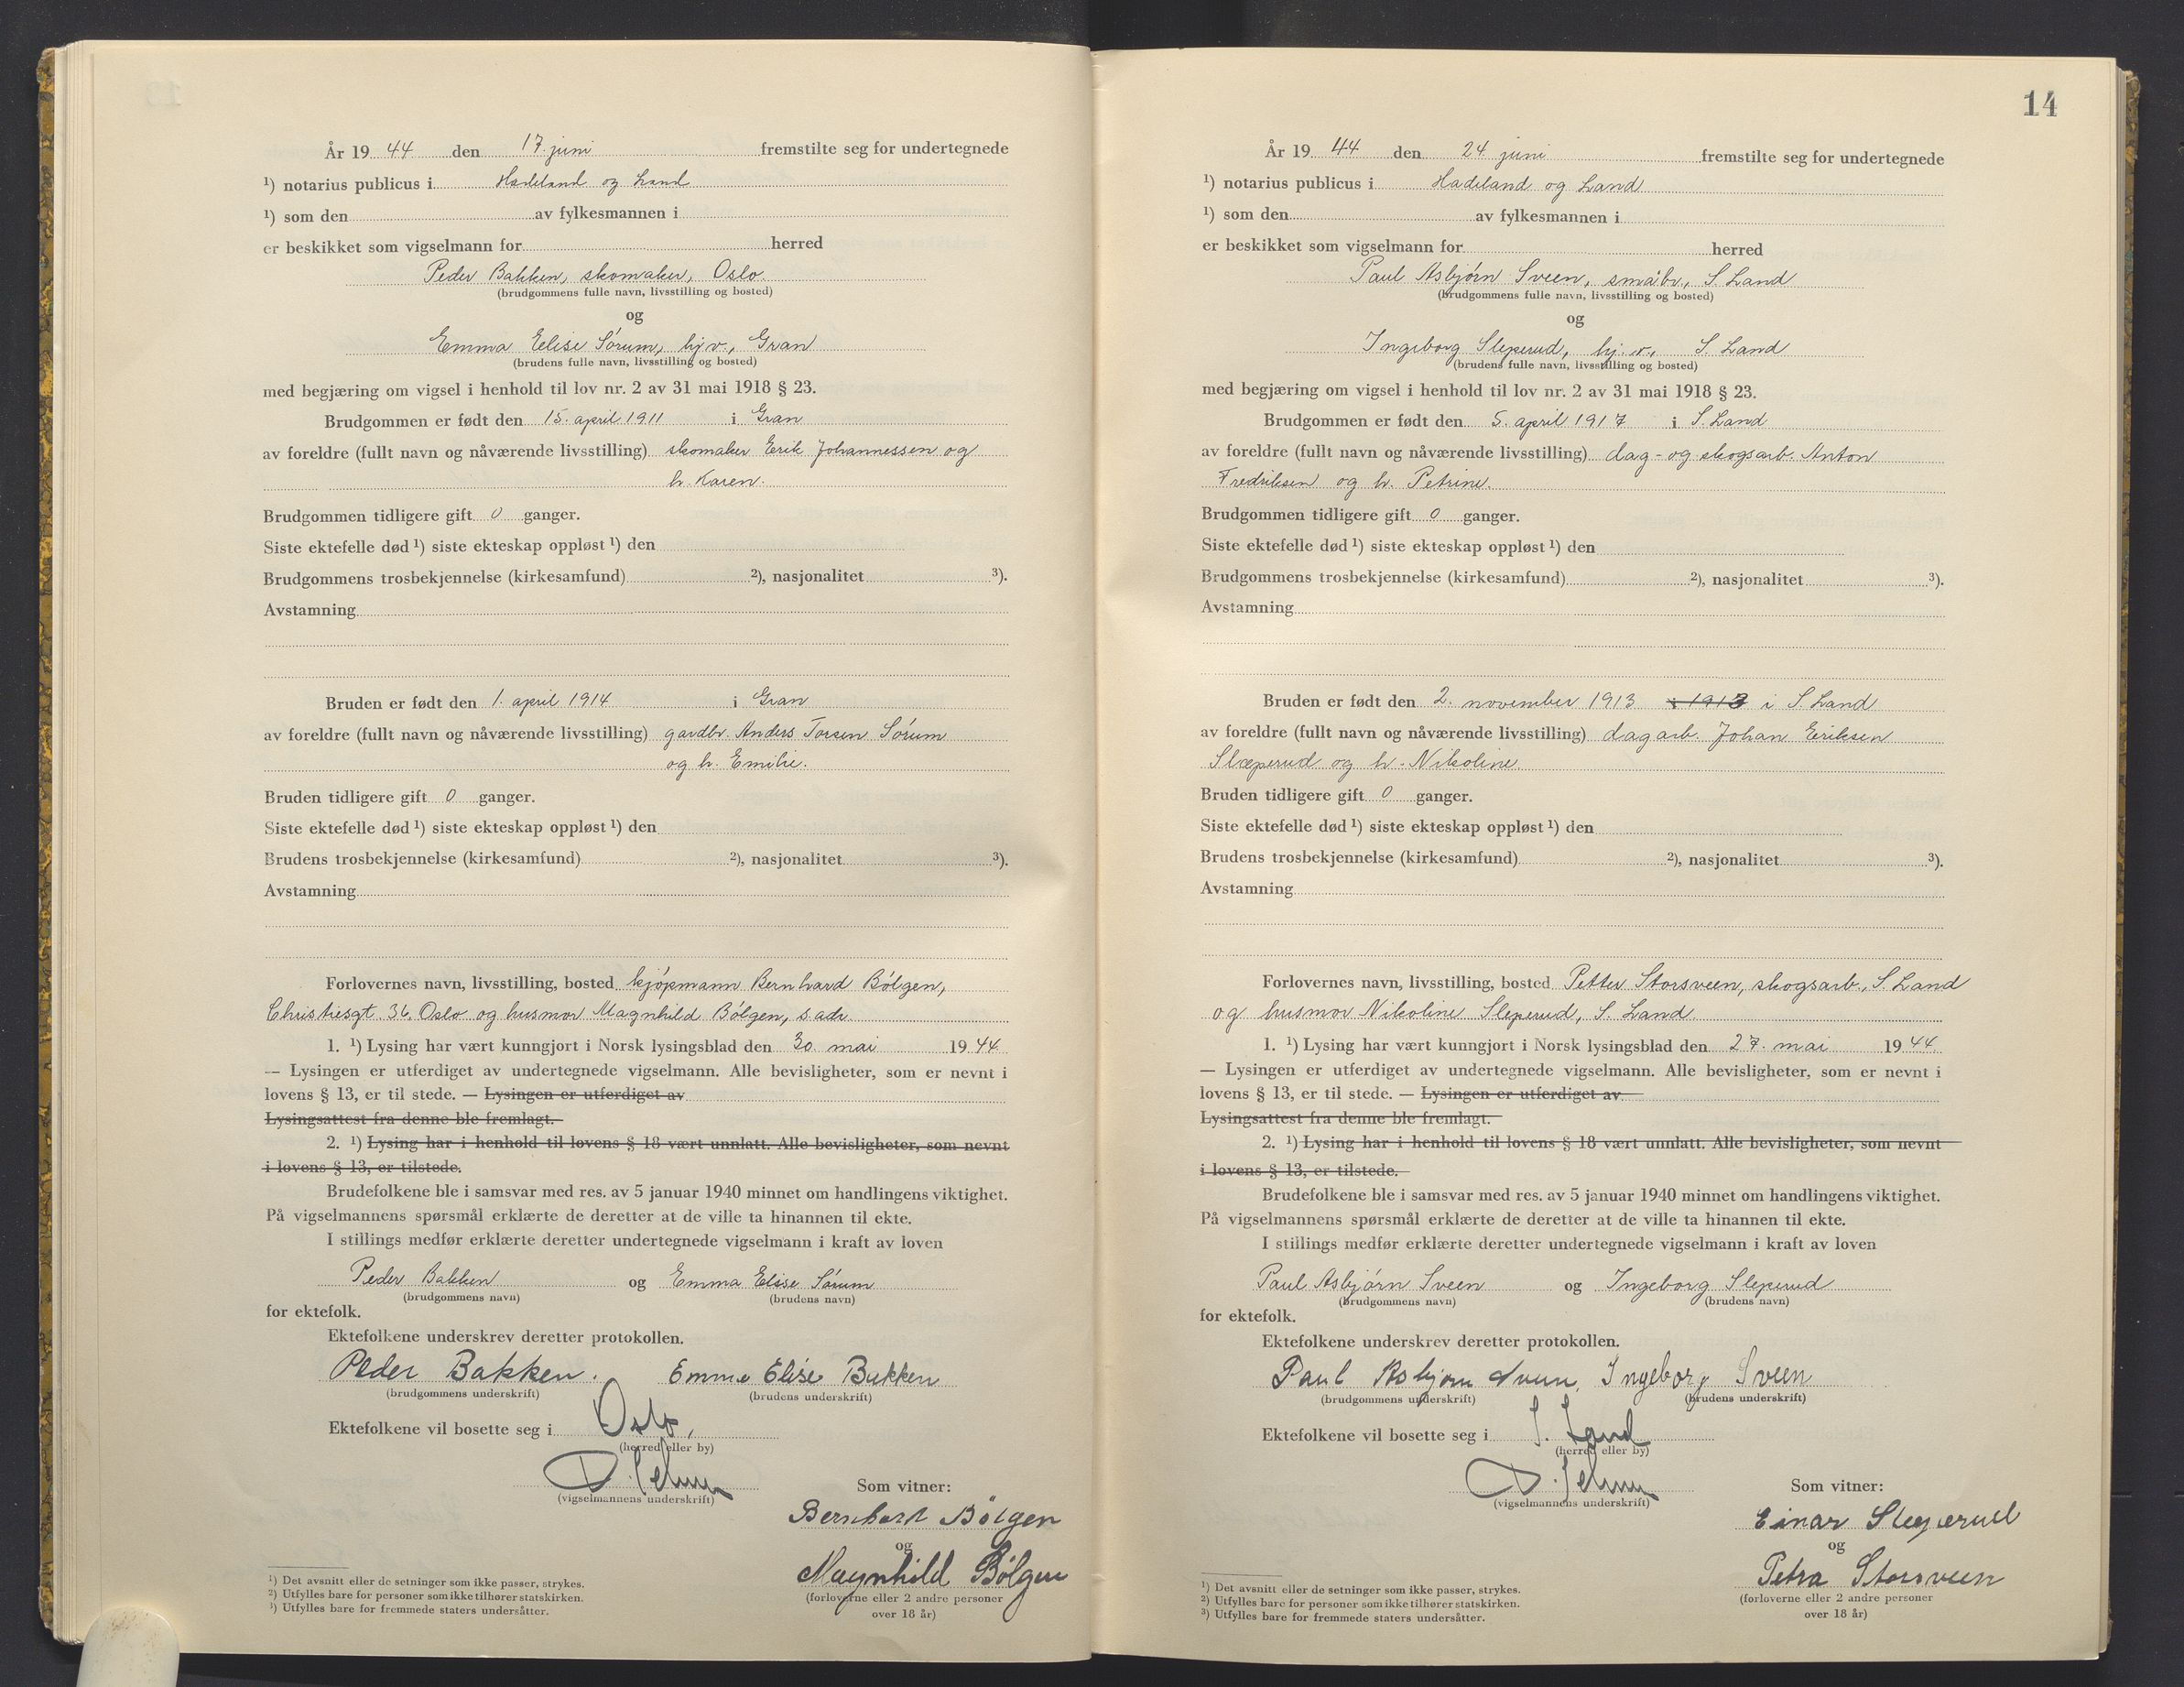 År 19 44 den 17. juni fremstilte seg for undertegnede
¹) notarius publicus i Hadeland og Land
¹) som den av fylkesmannen i
er beskikket som vigselmann for herred
Peder Bakken, skomaker, Oslo
(brudgommens fulle navn, livsstilling og bosted)
og
Emma Elise Sórum, hj.v., Gran
(brudens fulle navn, livsstilling og bosted)
med begjæring om vigsel i henhold til lov nr. 2 av 31 mai 1918 § 23.
Brudgommen er født den 15. april 1911 i Gran
av foreldre (fullt navn og nåværende livsstilling) skomaker Erik Johannessen og
h. Karen.
Brudgommen tidligere gift 0 ganger.
Siste ektefelle død ¹) siste ekteskap oppløst ¹) den
Brudgommens trosbekjennelse (kirkesamfund) ²), nasjonalitet ³).
Avstamning
Bruden er født den 1. april 1914 i Gran
av foreldre (fullt navn og nåværende livsstilling) gardbr. Anders Torsen Sórum
og h. Emilie.
Bruden tidligere gift 0 ganger.
Siste ektefelle død ¹) siste ekteskap oppløst ¹) den
Brudens trosbekjennelse (kirkesamfund) ²), nasjonalitet ³).
Avstamning
Forlovernes navn, livsstilling, bosted kjópmann Bernhard Bólgen,
Christiesgt. 36 Oslo og husmor Magnhild Bólgen, s. adr.
1. ¹) Lysing har vært kunngjort i Norsk lysingsblad den 30. mai 19 44.
— Lysingen er utferdiget av undertegnede vigselmann. Alle bevisligheter, som er nevnt i
lovens § 13, er til stede. — Lysingen er utferdiget av
Lysingsattest fra denne ble fremlagt.
2. ¹) Lysing har i henhold til lovens § 18 vært unnlatt. Alle bevisligheter, som nevnt
i lovens § 13, er tilstede.
Brudefolkene ble i samsvar med res. av 5 januar 1940 minnet om handlingens viktighet.
På vigselmannens spørsmål erklærte de deretter at de ville ta hinannen til ekte.
I stillings medfør erklærte deretter undertegnede vigselmann i kraft av loven
Peder Bakken og Emma Elise Sórum
(brudgommens navn) (brudens navn)
for ektefolk.
Ektefolkene underskrev deretter protokollen.
Peder Bakken. Emma Elise Bakken
(brudgommens underskrift) (brudens underskrift)
Ektefolkene vil bosette seg i Oslo,
(herred eller by)
(vigselmannens underskrift)
Som vitner:
Bernhard Bölgen
og
Magnhild Bølgen
(forloverne eller 2 andre personer
over 18 år)
¹) Det avsnitt eller de setninger som ikke passer, strykes.
²) Utfylles bare for personer som ikke tilhører statskirken.
³) Utfylles bare for fremmede staters undersåtter.
14
År 19 44 den 24. juni fremstilte seg for undertegnede
¹) notarius publicus i Hadeland og Land
¹) som den av fylkesmannen i
er beskikket som vigselmann for herred
Paul Asbjórn Sveen, småbr., S. Land
(brudgommens fulle navn, livsstilling og bosted)
og
Ingeborg Sleperud, hj.v., S. Land
(brudens fulle navn, livsstilling og bosted)
med begjæring om vigsel i henhold til lov nr. 2 av 31 mai 1918 § 23.
Brudgommen er født den 5. april 1917 i S. Land
av foreldre (fullt navn og nåværende livsstilling) dag- og skogsarb. Anton
Fredriksen og h. Petrine.
Brudgommen tidligere gift 0 ganger.
Siste ektefelle død ¹) siste ekteskap oppløst ¹) den
Brudgommens trosbekjennelse (kirkesamfund) ²), nasjonalitet ³).
Avstamning
Bruden er født den 2. november 1913 i 1913 i S. Land
av foreldre (fullt navn og nåværende livsstilling) dagarb. Johan Eriksen
Slæperud og h. Nikoline.
Bruden tidligere gift 0 ganger.
Siste ektefelle død ¹) siste ekteskap oppløst ¹) den
Brudens trosbekjennelse (kirkesamfund) ²), nasjonalitet ³).
Avstamning
Forlovernes navn, livsstilling, bosted Petter Storsveen, skogsarb., S. Land
og husmor Nikoline Sleperud, S. Land.
1. ¹) Lysing har vært kunngjort i Norsk lysingsblad den 27. mai 19 44.
— Lysingen er utferdiget av undertegnede vigselmann. Alle bevisligheter, som er nevnt i
lovens § 13, er til stede. — Lysingen er utferdiget av
Lysingsattest fra denne ble fremlagt.
2. ¹) Lysing har i henhold til lovens § 18 vært unnlatt. Alle bevisligheter, som nevnt
i lovens § 13, er tilstede.
Brudefolkene ble i samsvar med res. av 5 januar 1940 minnet om handlingens viktighet.
På vigselmannens spørsmål erklærte de deretter at de ville ta hinannen til ekte.
I stillings medfør erklærte deretter undertegnede vigselmann i kraft av loven
Paul Asbjórn Sveen og Ingeborg Sleperud
(brudgommens navn) (brudens navn)
for ektefolk.
Ektefolkene underskrev deretter protokollen.
Paul Asbjørn Sveen, Ingeborg Sveen
(brudgommens underskrift) (brudens underskrift)
Ektefolkene vil bosette seg i S. Land
(herred eller by)
(vigselmannens underskrift)
Som vitner:
Einar Sleperud
og
Petra Storsveen
(forloverne eller 2 andre personer
over 18 år)
¹) Det avsnitt eller de setninger som ikke passer, strykes.
²) Utfylles bare for personer som ikke tilhører statskirken.
³) Utfylles bare for fremmede staters undersåtter.